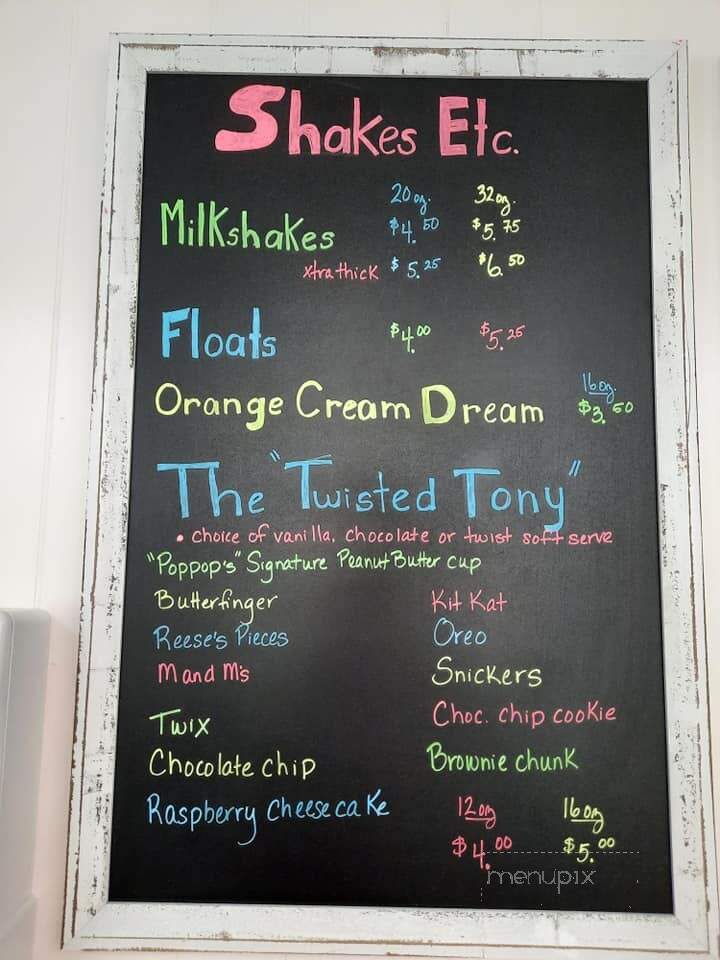 Shakes Etc.
20 oz. 32 oz.
Milkshakes $4.50 $5.75
xtra thick $5.25 $6.50
Floats $4.00 $5.25
16 oz.
Orange Cream Dream $3.50
The "Twisted Tony"
• choice of vanilla, chocolate or twist soft serve
"Poppop's" Signature Peanut Butter cup
Butterfinger Kit Kat
Reese's Pieces Oreo
M and M's Snickers
Twix Choc. chip cookie
Chocolate chip Brownie chunk
Raspberry Cheesecake
12 oz 16 oz
$4.00 $5.00
menupix